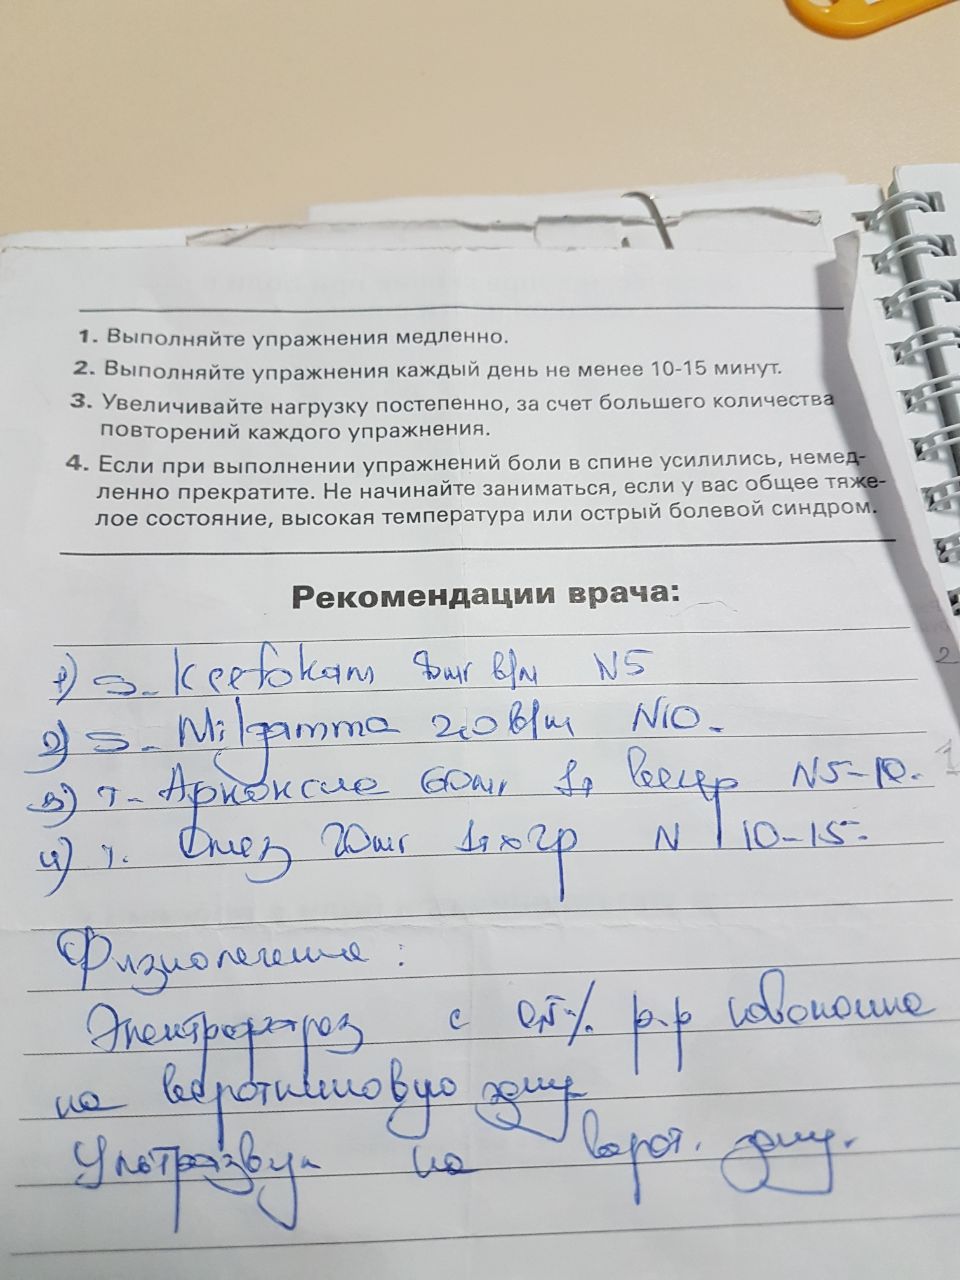 1. Выполняйте упражнения медленно.
2. Выполняйте упражнения каждый день не менее 10-15 минут.
3. Увеличивайте нагрузку постепенно, за счет большего количества
повторений каждого упражнения.
4. Если при выполнении упражнений боли в спине усилились, немед-
ленно прекратите. Не начинайте заниматься, если у вас общее тяже-
лое состояние, высокая температура или острый болевой синдром.
Рекомендации врача:
1) S. Ksefokam 8мг в/м N5
2) S. Milgamma 2,0 в/м N10.
3) т. Аркоксиа 60мг 1т вечер N5-10.
4) т. Омез 20мг 1т х 2р N 10-15.
Физиолечение:
Электрофорез с р-р новокаина
на воротниковую зону
Ультразвук на ворот. зону.
2
1